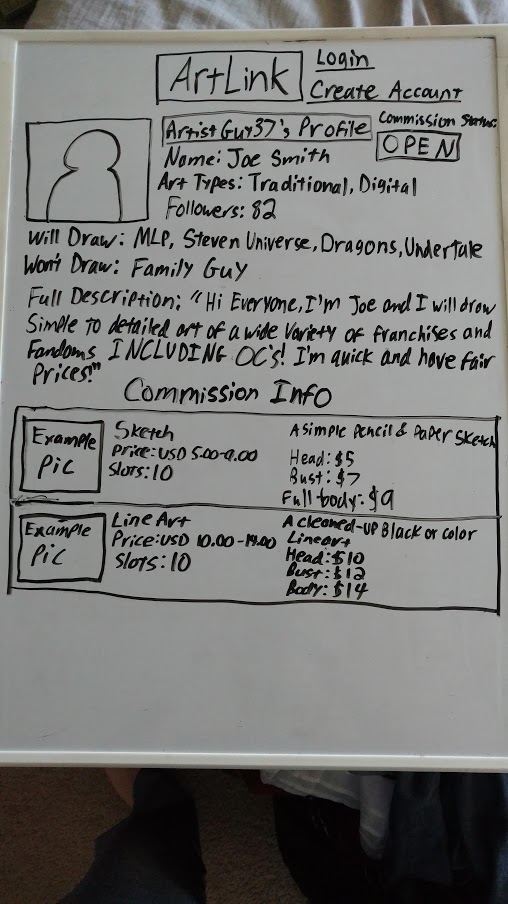 ArtLink
Login
Create Account
Commission Status:
OPEN
Artist Guy37's Profile
Name: Joe Smith
Art Types: Traditional, Digital
Followers: 82
Will Draw: MLP, Steven Universe, Dragons, Undertale
Won't Draw: Family Guy
Full Description: "Hi Everyone, I'm Joe and I will draw
Simple to detailed art of a wide variety of franchises and
Fandoms INCLUDING OC's! I'm quick and have fair
Prices!"
Commission Info
Example
Pic
Sketch
Price: USD 5.00-9.00
Slots: 10
A simple Pencil & Paper Sketch
Head: $5
Bust: $7
Full body: $9
Example
Pic
Line Art
Price: USD 10.00-14.00
Slots: 10
A cleaned-up Black or color
Lineart
Head: $10
Bust: $12
Body: $14